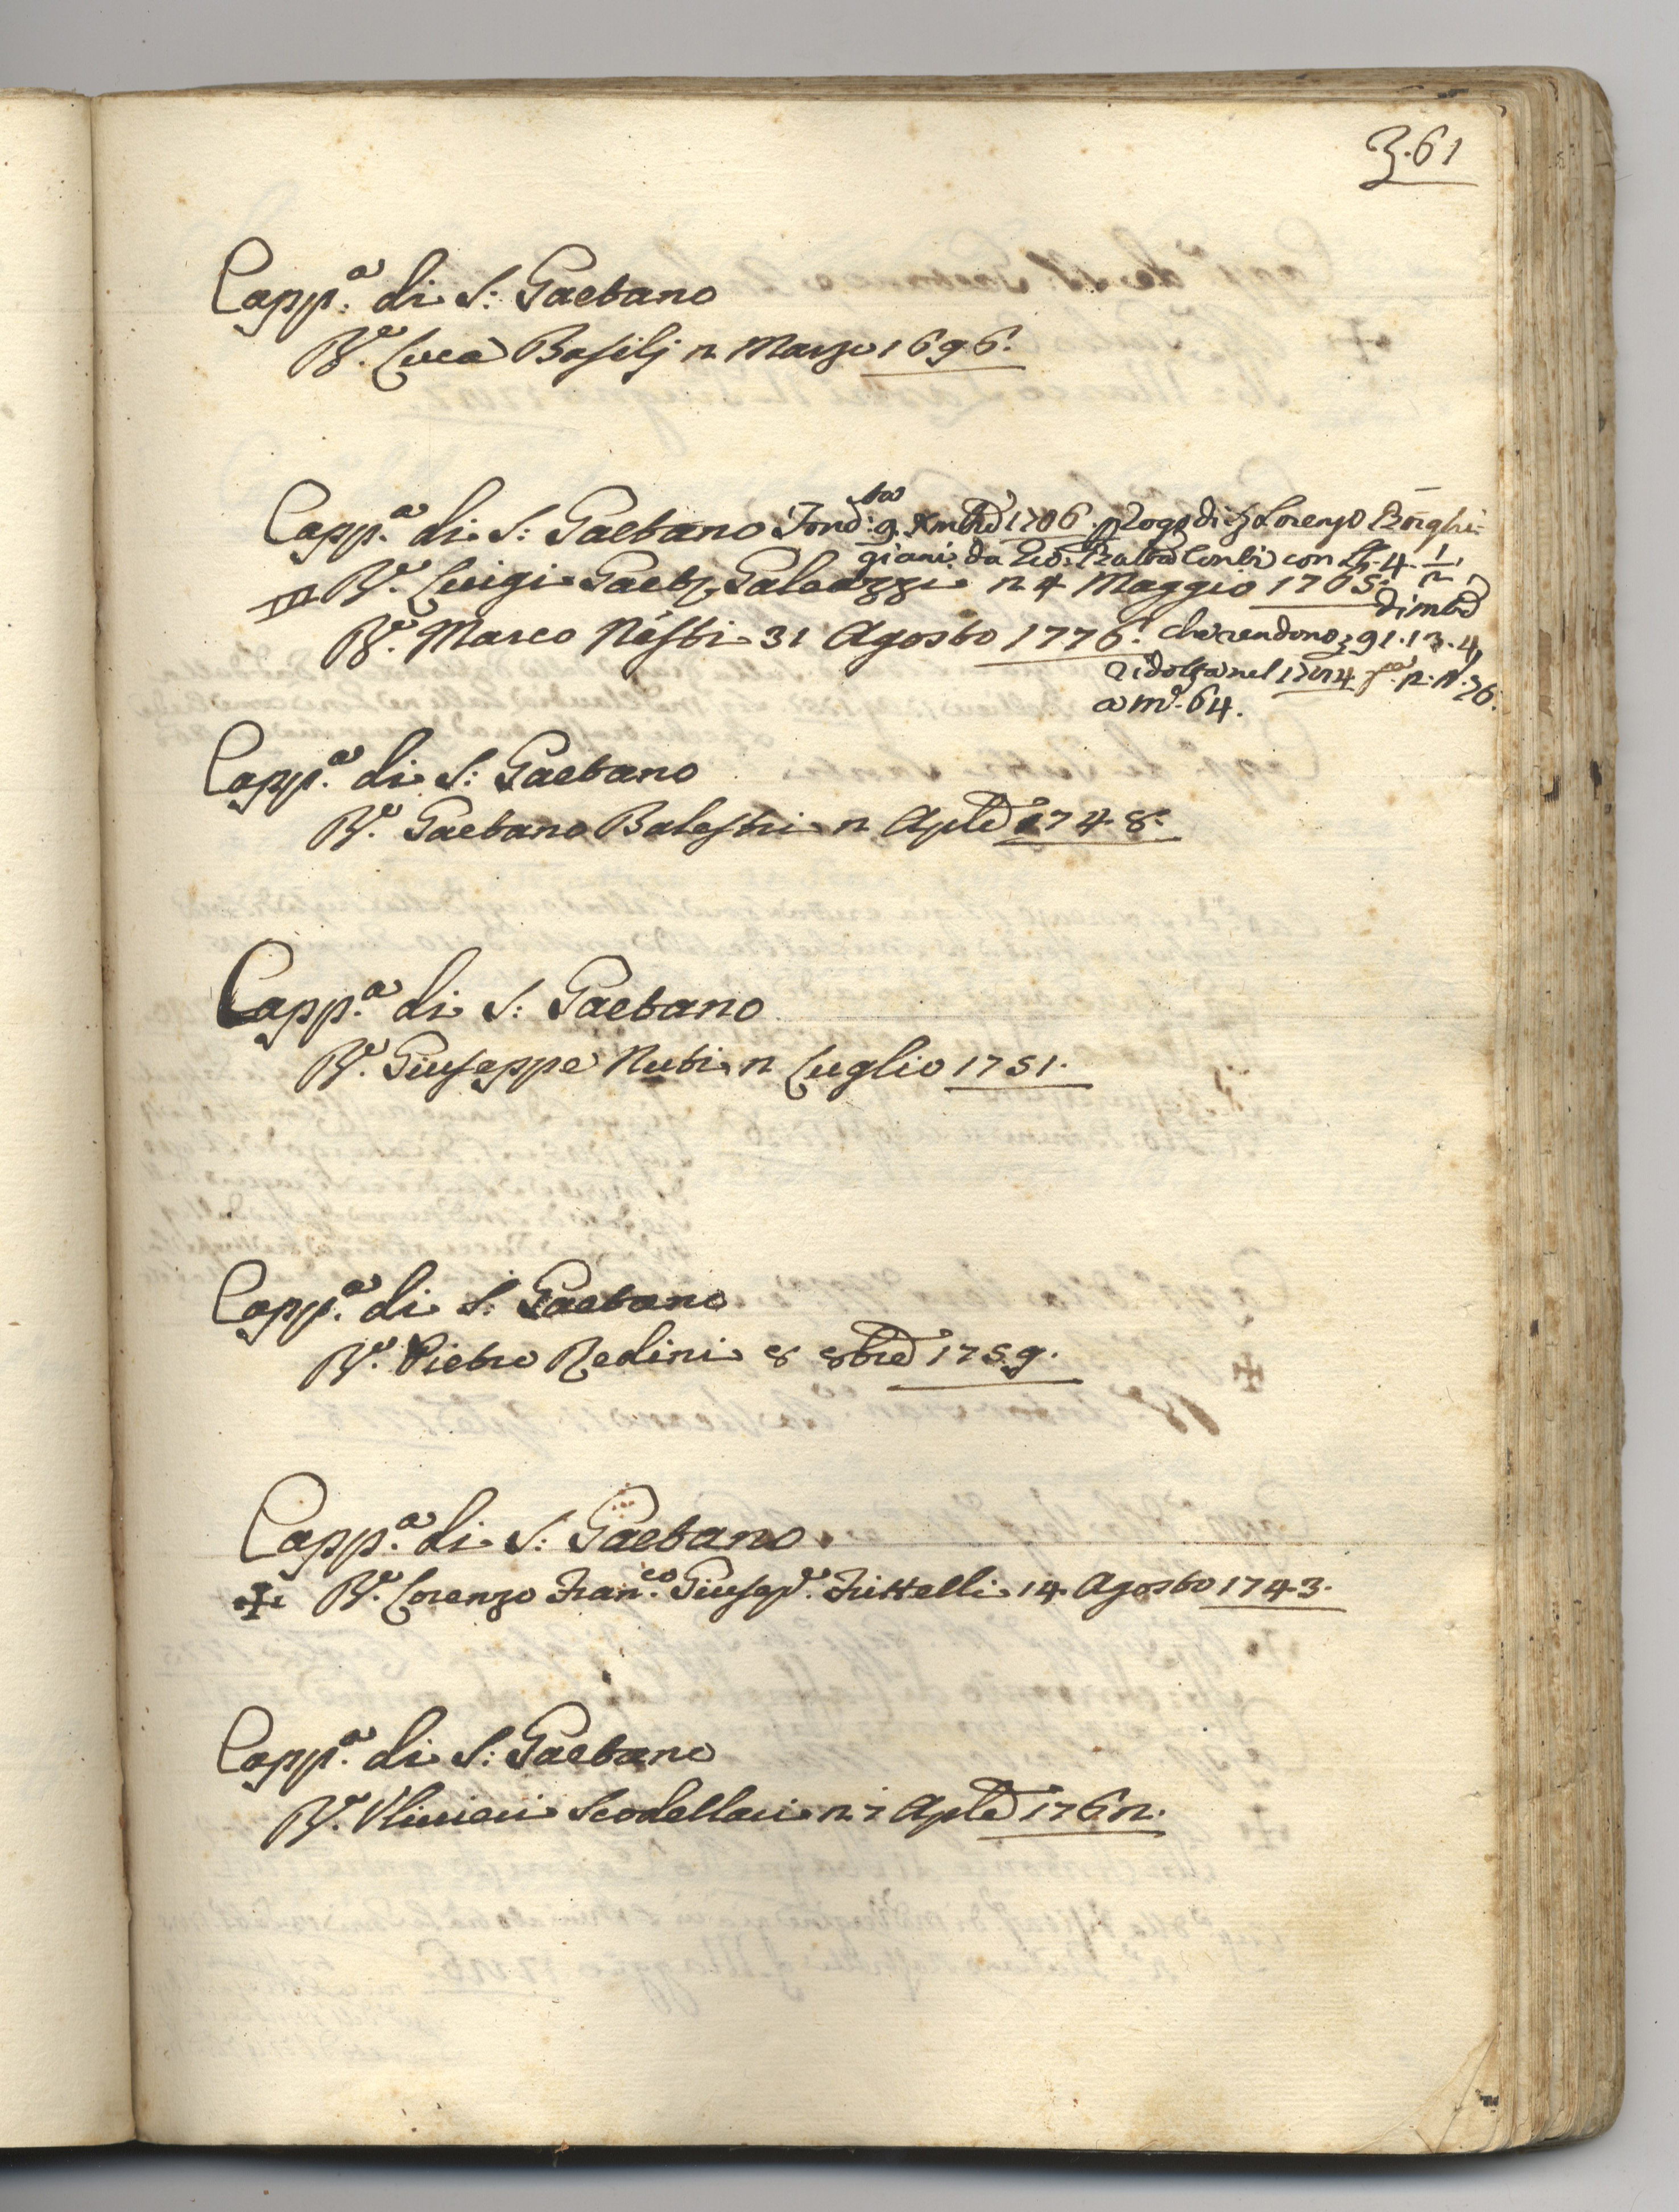 3.61
Capp.a di S: Gaetano
Pe. Luca Basilj 2 Marzo 1696.
Capp.a di S: Gaetano Fond.ta 9. Xmbre 1706. p Rogo di Lorenzo Borghi-
giani da Gio: Conti con 4. 1/2
Pe. Luigi Gaet. Galeazzi 24 Maggio 1765.
Pe. Marco Nesti 31 Agosto 1776. che rendono 91.13.4
ridotta nel 1714 p. N. 76.
a m. 64.
Capp.a di S: Gaetano
Pe. Gaetano Balestri 2 Aple 1748.
Capp.a di S: Gaetano
Pe. Giuseppe Nuti 2 Luglio 1751.
Capp.a di S: Gaetano
Pe. Pietro Redini 8 8bre 1759.
Capp.a di S: Gaetano
✠ Pe. Lorenzo Fran.co Giusep.e Frittelli 14 Agosto 1743.
Capp.a di S: Gaetano
Pe. Ulivieri Scodellari 27 Aple 1762.